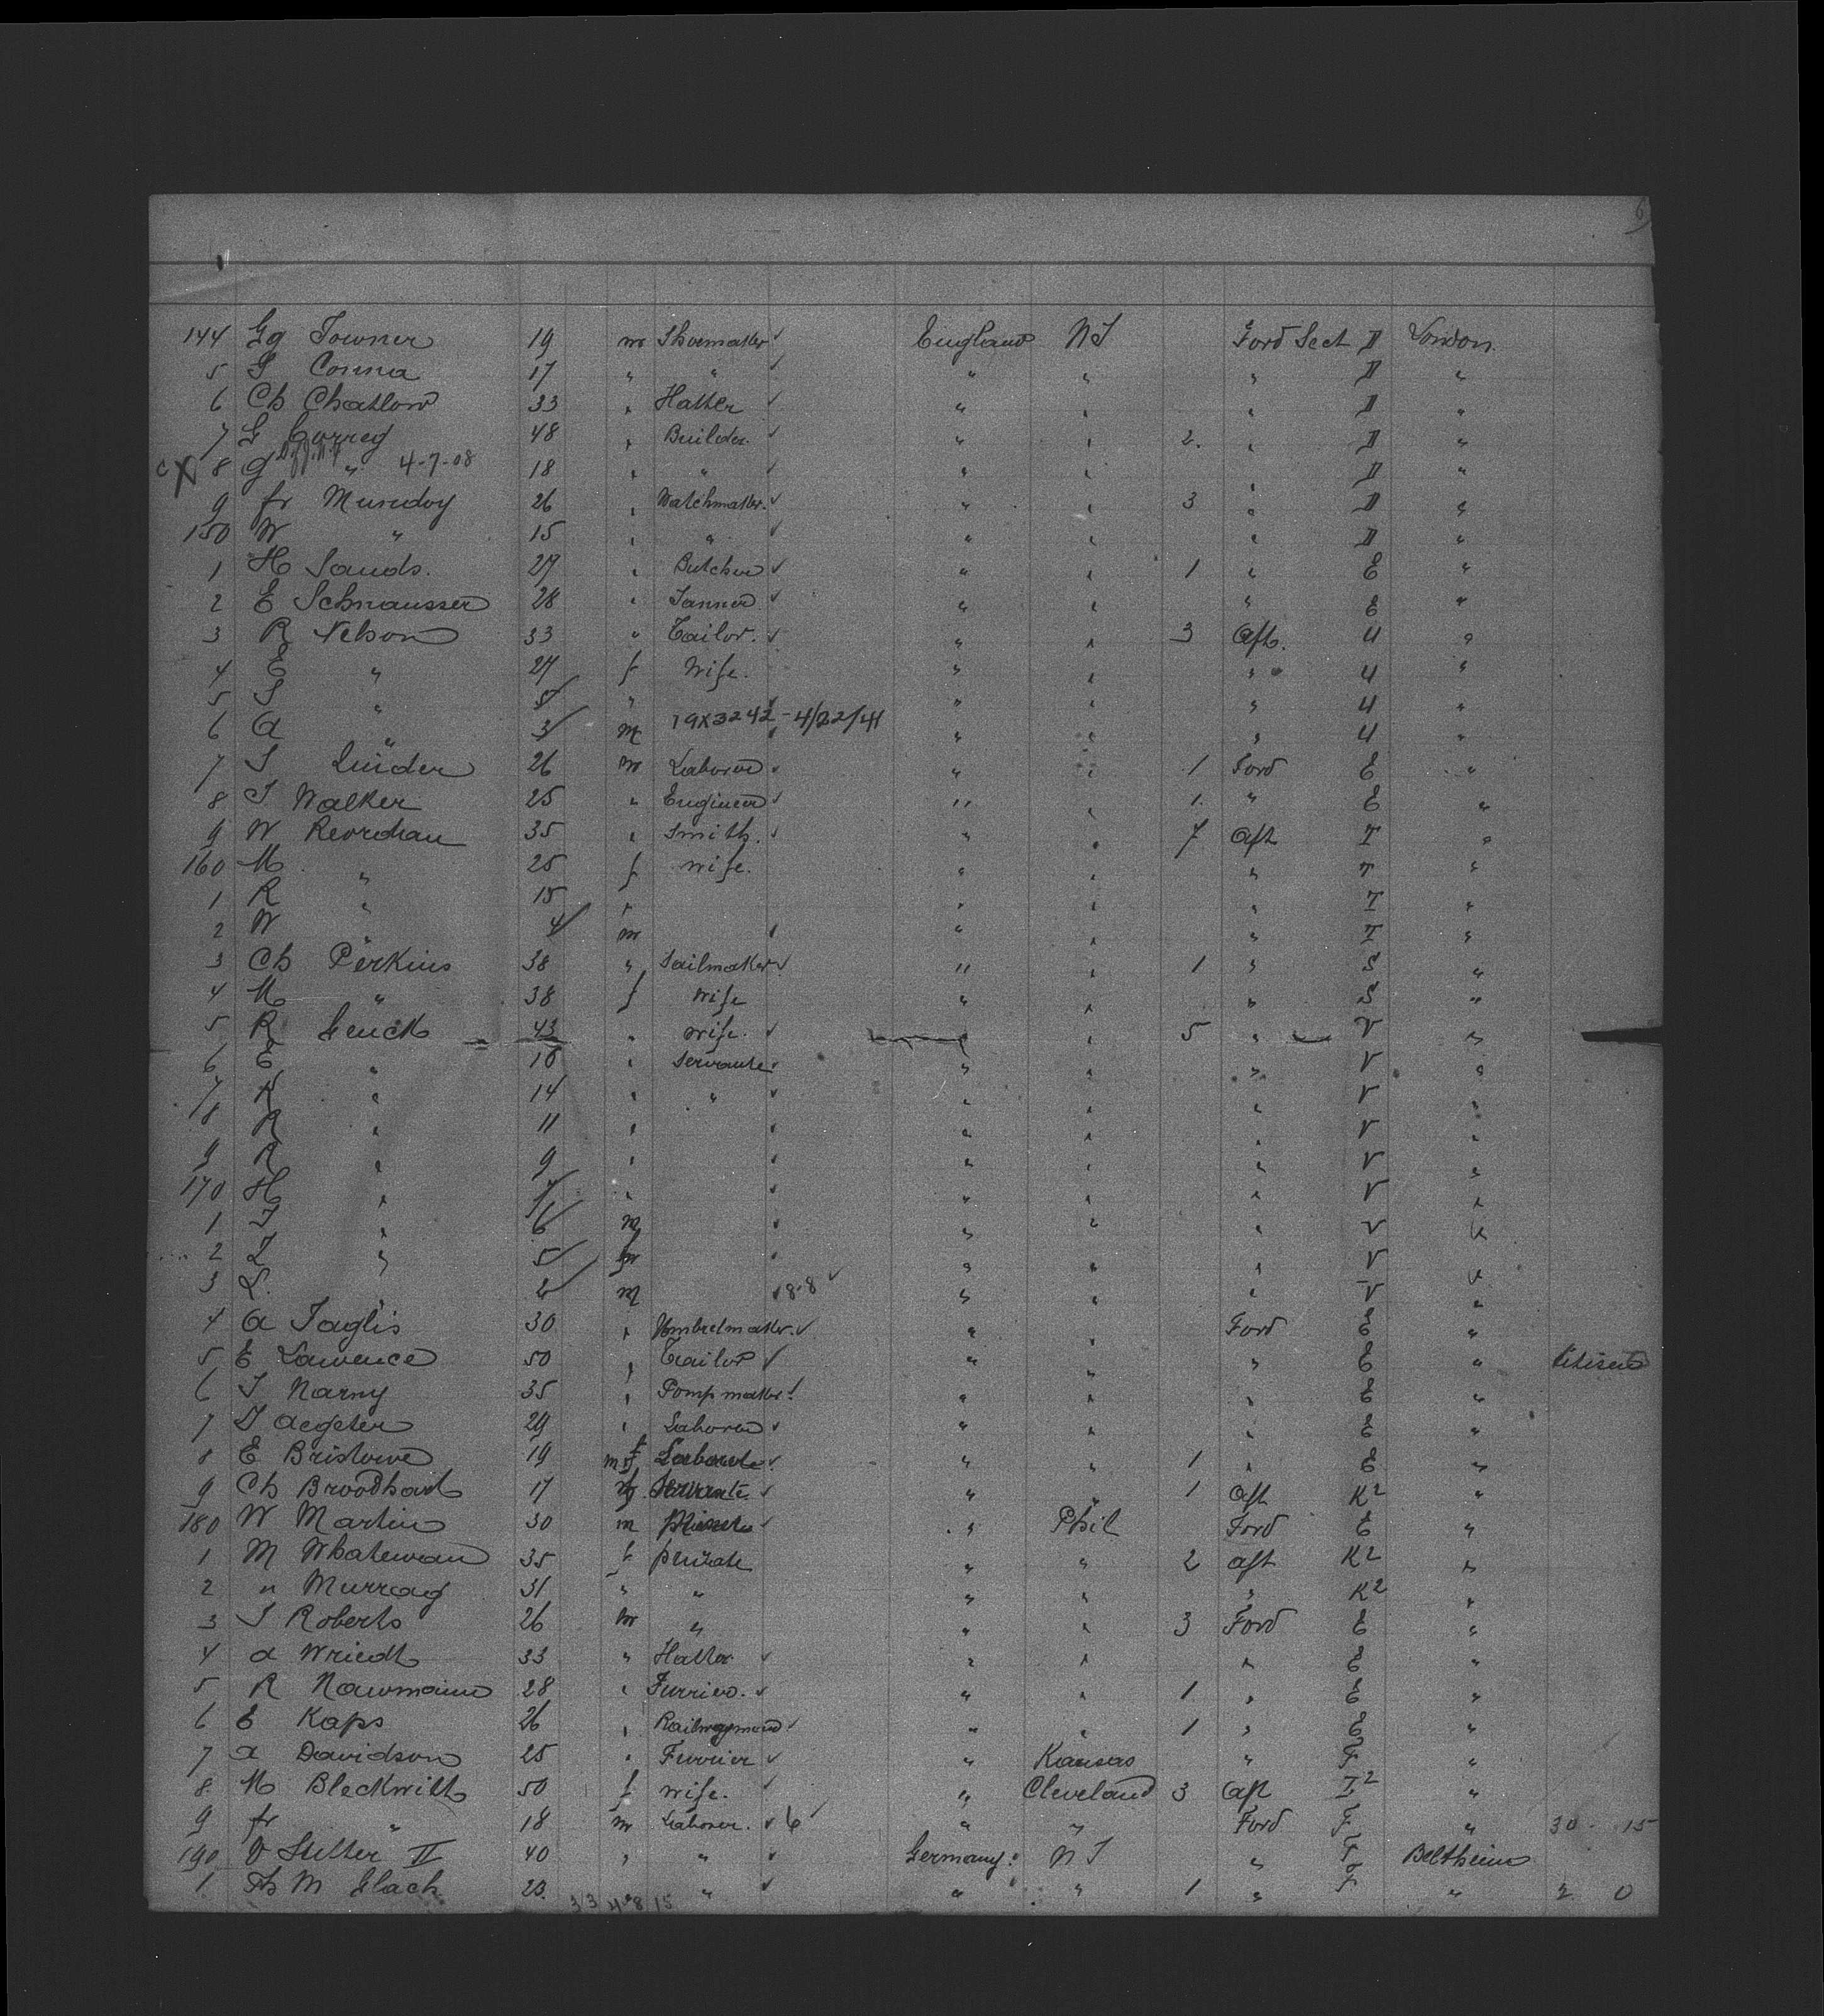 6
144 Gg Towner 19 m Shoemaker ✓ England NJ Ford Sect D London
5 G Conna 17 " " ✓ " " " D "
6 Ch Chatlow 33 " Hatter ✓ " " " D "
7 G Correy 48 " Builder ✓ " " 2. " D "
c X 8 G " 4-7-08 18 " " ✓ " " " D "
9 fr Mundoy 26 " Watchmaker ✓ " " 3 " D "
150 W " 15 " " ✓ " " " D "
1 H Sands. 27 " Butcher ✓ " " 1 " E "
2 E Schnausser 28 " Tanner ✓ " " " E "
3 R Nelson 33 " Tailor. ✓ " " 3 Aft. U "
4 E " 27 f Wife. " " " U "
5 S " 5 " " " " U "
6 A " 3 m 19X3242 - 4/22/41 " " " U "
7 J Linder 26 m Laborer ✓ " " 1 Ford E "
8 J Walker 25 " Engineer ✓ " " 1. " E "
9 W Reordean 35 " Smith. ✓ " " 7 Aft T "
160 M " 25 f wife. " " " T "
1 R " 15 " " " " T "
2 W " 4 m ✓ " " " T "
3 Ch Perkins 38 " Sailmaker ✓ " " 1 " S "
4 M " 38 f Wife " " " S "
5 R Genck 43 " wife. ✓ " " 5 " V "
6 E " 16 " Servante ✓ " " " V "
7 R " 14 " " ✓ " " " V "
8 R " 11 " ✓ " " " V "
9 R " 9 " ✓ " " " V "
170 H " 7 " ✓ " " " V "
1 J " 6 m ✓ " " " V "
2 L " 5 ✓ " " " V "
3 L. " 2 m ✓ 8-8 ✓ " " " V "
4 A Taglis 30 " Umbrelmaker. ✓ " " Ford E "
5 E Lawence 50 " Tailor ✓ " " " E " Citisen
6 J Narny 35 " Pompmaker ✓ " " " E "
7 J Aegeter 29 " Laborer ✓ " " " E "
8 E Bristowe 19 m f ✓ " " 1 " E "
9 Ch Broodhart 17 Servante ✓ " " 1 Aft K2 "
180 W Martin 30 m ✓ " Phil Ford E "
1 M Whateman 35 f private " " 2 aft K2 "
2 " Murray 31 " " " " " K2 "
3 J Roberts 26 m " " " 3 Ford E "
4 A Wriedt 33 " Hatter ✓ " " " E "
5 R Nawmann 28 " Furrier. ✓ " " 1 " E "
6 E Kaps 26 " ✓ " " 1 " E "
7 A Davidson 25 " Furrier ✓ " Kansas " F "
8 M Bleckwith 50 f wife. ✓ " Cleveland 3 aft I2 "
9 fr " 18 m Laborer. ✓ 6 ✓ " " Ford F " 30 15
190 V Stetter II 40 " " ✓ Germany NJ " F Beltheim
1 Th M Glach 23. " ✓ " " 1 " F " 2 0
33 48 15